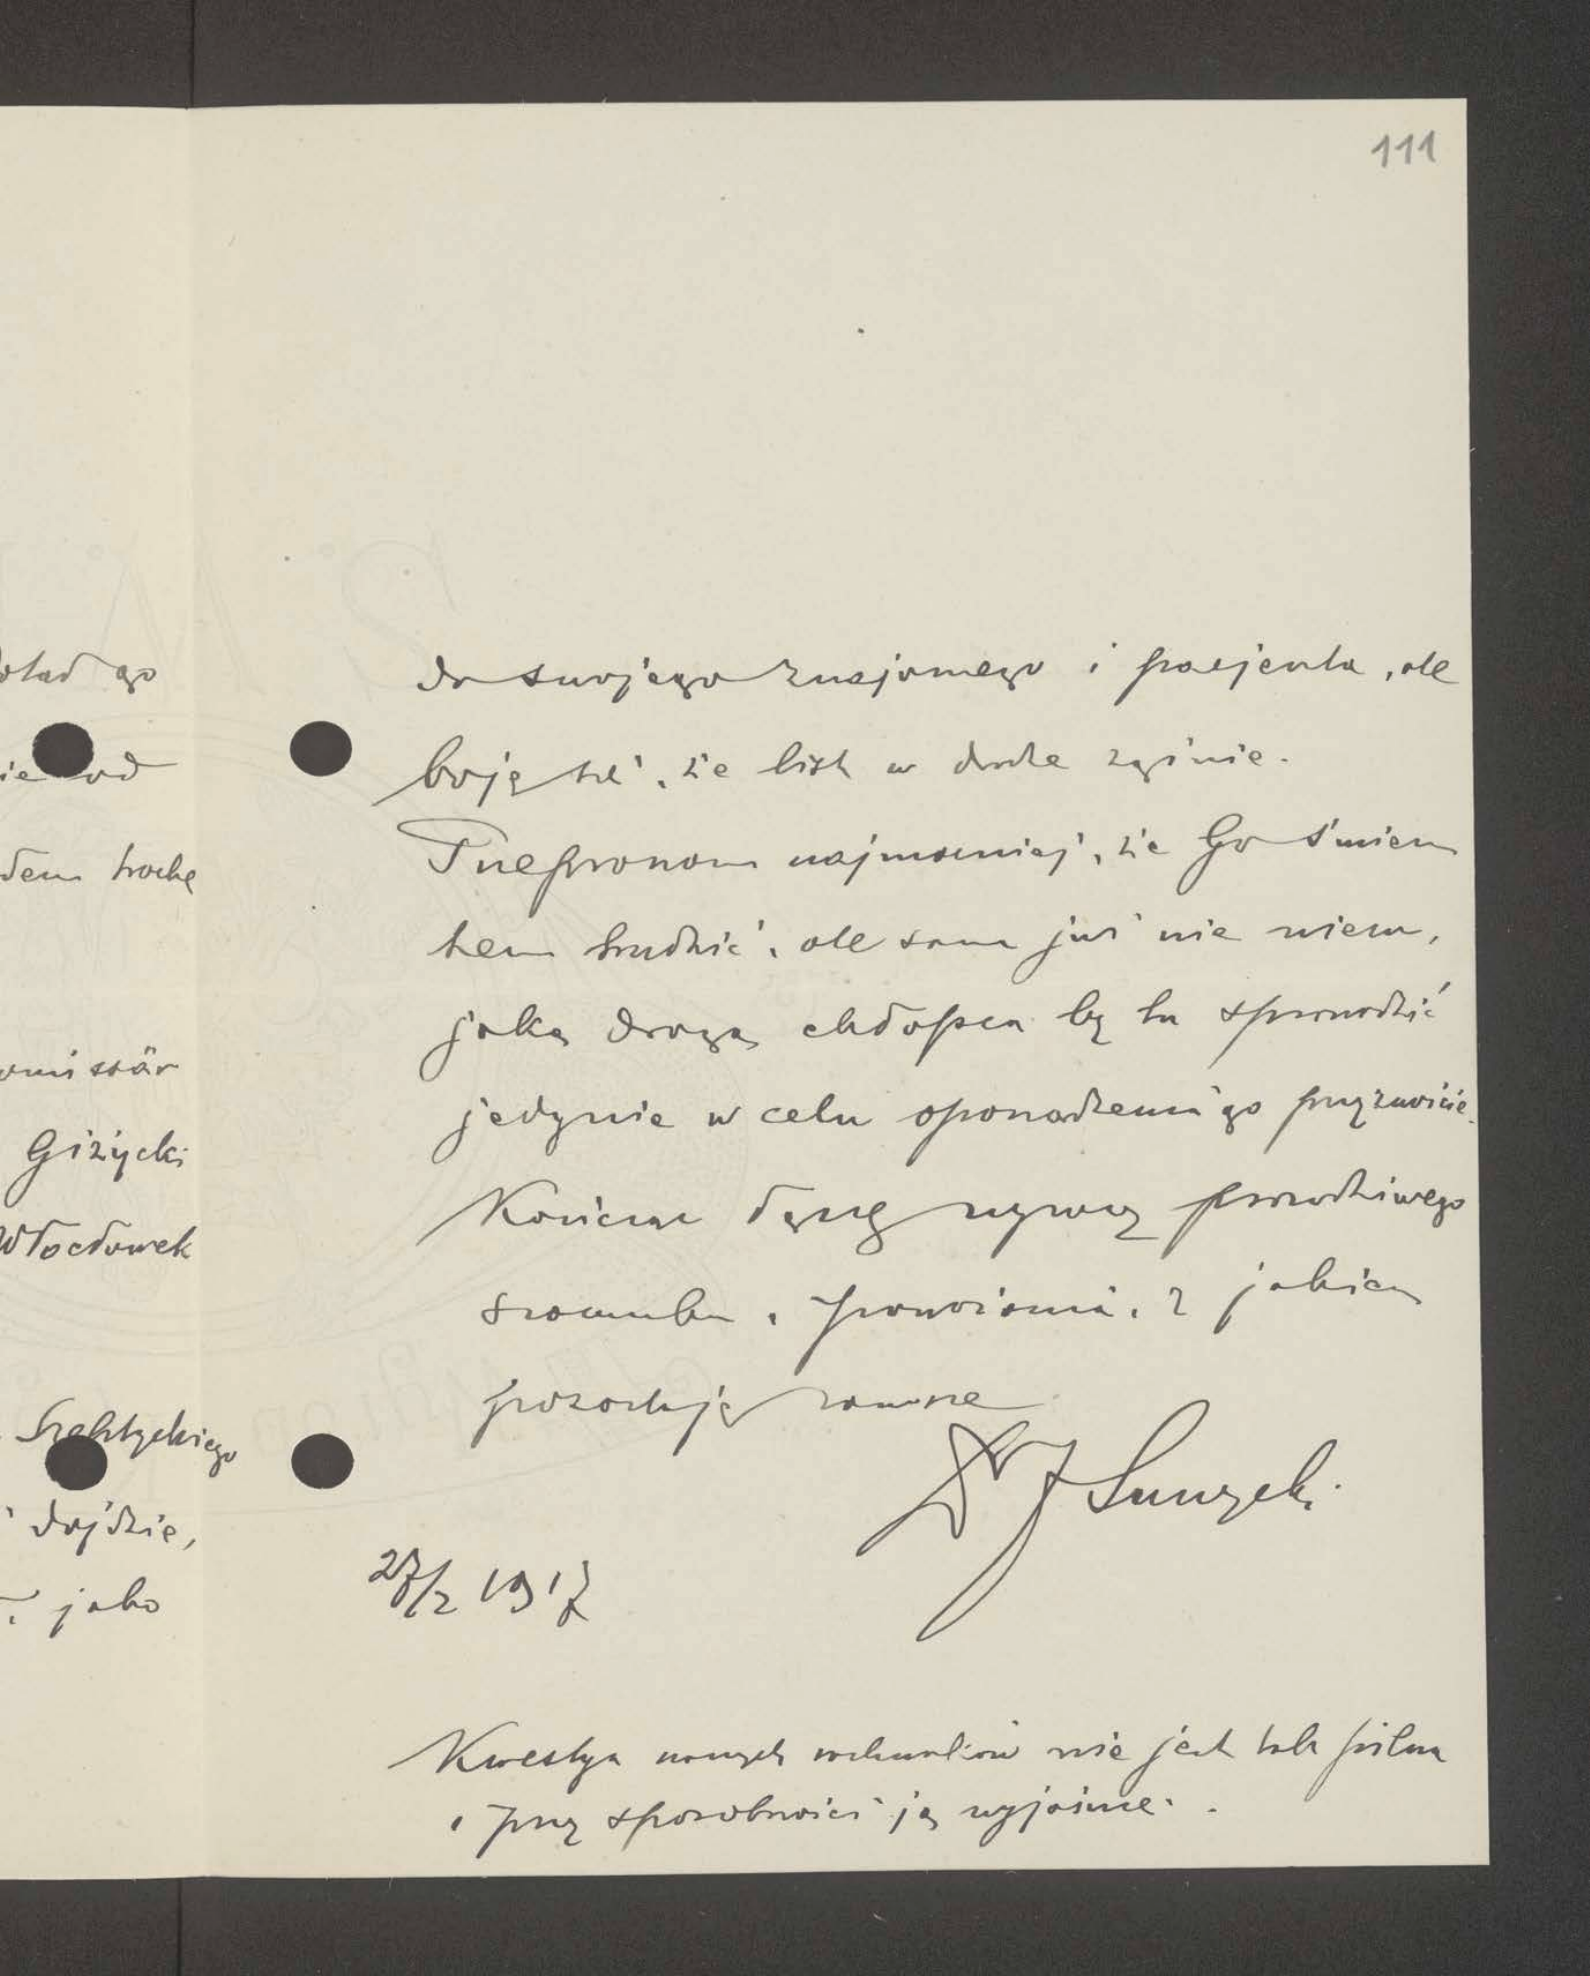 111
otad go
ie od
dem trochę
omissär
Giżycki
Włocławek
Szeptyckiego
dojdzie,
jako
do swojego znajomego i pacjenta, ale
boję się, że list w drodze zginie.
Przepraszam najmocniej, że Go śmiem
tem trudzić, ale sam już nie wiem,
jaką drogą chłopca by tu sprowadzić
jedynie w celu oprowadzenia go
Kończąc łączę wyrazy prawdziwego
szacunku i poważania, z jakiem
pozostaję zawsze
Dr J
27/2 1917
Kwestya nie jest tak pilna
i przy sposobności ją wyjaśnię.